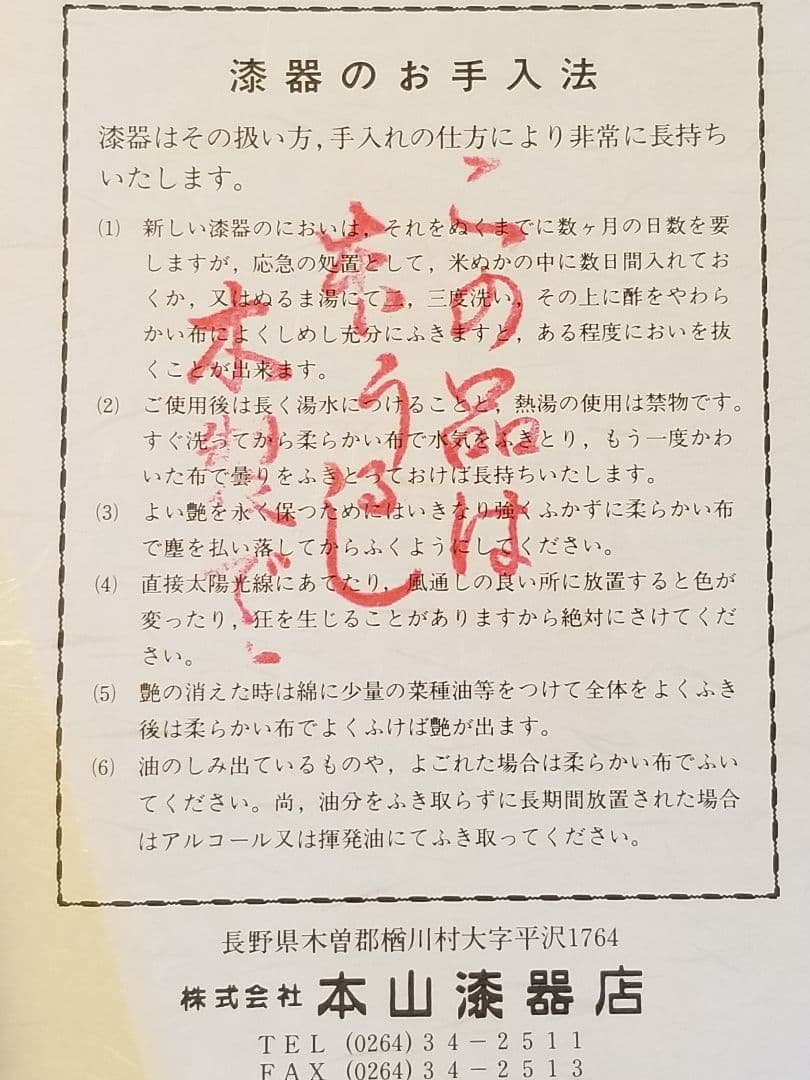 漆器のお手入法
漆器はその扱い方,手入れの仕方により非常に長持ち
いたします。
(1) 新しい漆器のにおいは,それをぬくまでに数ヶ月の日数を要
しますが,応急の処置として,米ぬかの中に数日間入れてお
くか,又はぬるま湯にて二,三度洗い,その上に酢をやわら
かい布によくしめし充分にふきますと,ある程度においを抜
くことが出来ます。
(2) ご使用後は長く湯水につけることと,熱湯の使用は禁物です。
すぐ洗ってから柔らかい布で水気をふきとり,もう一度かわ
いた布で曇りをふきとっておけば長持ちいたします。
(3) よい艶を永く保つためにはいきなり強くふかずに柔らかい布
で塵を払い落してからふくようにしてください。
(4) 直接太陽光線にあてたり,風通しの良い所に放置すると色が
変ったり,狂を生じることがありますから絶対にさけてくだ
さい。
(5) 艶の消えた時は綿に少量の菜種油等をつけて全体をよくふき
後は柔らかい布でよくふけば艶が出ます。
(6) 油のしみ出ているものや,よごれた場合は柔らかい布でふい
てください。尚,油分をふき取らずに長期間放置された場合
はアルコール又は揮発油にてふき取ってください。
この品は
本うるし
木製で
長野県木曽郡楢川村大字平沢1764
株式会社 本山漆器店
TEL (0264)34-2511
FAX (0264)34-2513